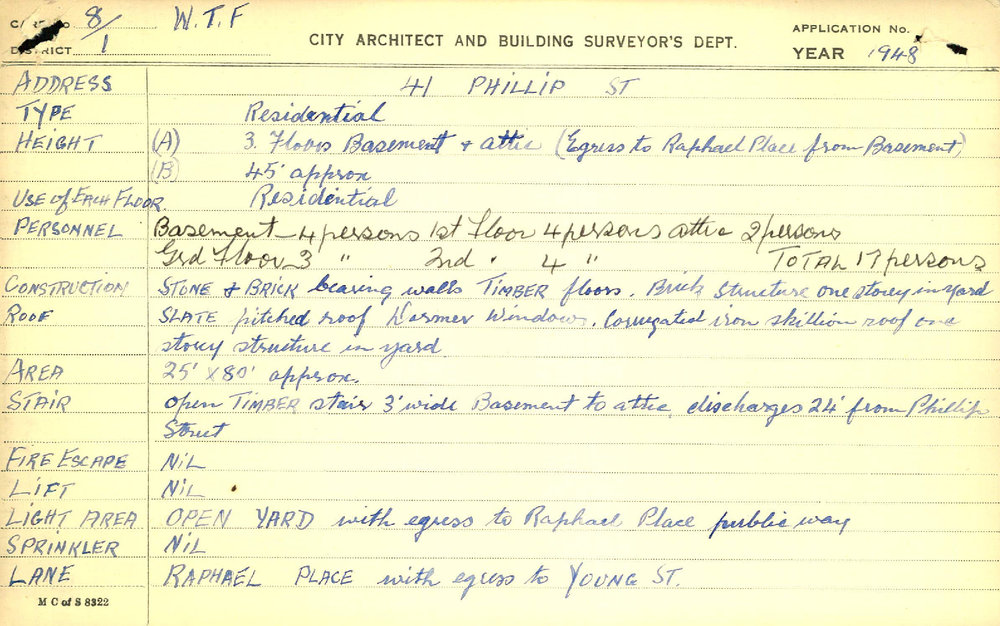 CARD No 8/1 W.T.F
DISTRICT
CITY ARCHITECT AND BUILDING SURVEYOR'S DEPT.
APPLICATION No.
YEAR 1948
ADDRESS 41 PHILLIP ST
TYPE Residential
HEIGHT (A) 3 Floors Basement + attic (Egress to Raphael Place from Basement)
(B) 45' approx
USE of EACH FLOOR Residential
PERSONNEL Basement - 4 persons 1st Floor 4 persons attic 2 persons
Grd Floor 3 " 2nd " 4 " TOTAL 17 persons
CONSTRUCTION STONE & BRICK bearing walls TIMBER floors. Brick Structure one storey in yard
ROOF SLATE pitched roof Dormer Windows. Corrugated iron skillion roof one
storey structure in yard
AREA 25' x 80' approx.
STAIR open TIMBER stair 3' wide Basement to attic, discharges 24' from Phillip
Street
FIRE ESCAPE NIL
LIFT NIL
LIGHT AREA OPEN YARD with egress to Raphael Place public way
SPRINKLER NIL
LANE RAPHAEL PLACE with egress to YOUNG ST.
M C of S 8322